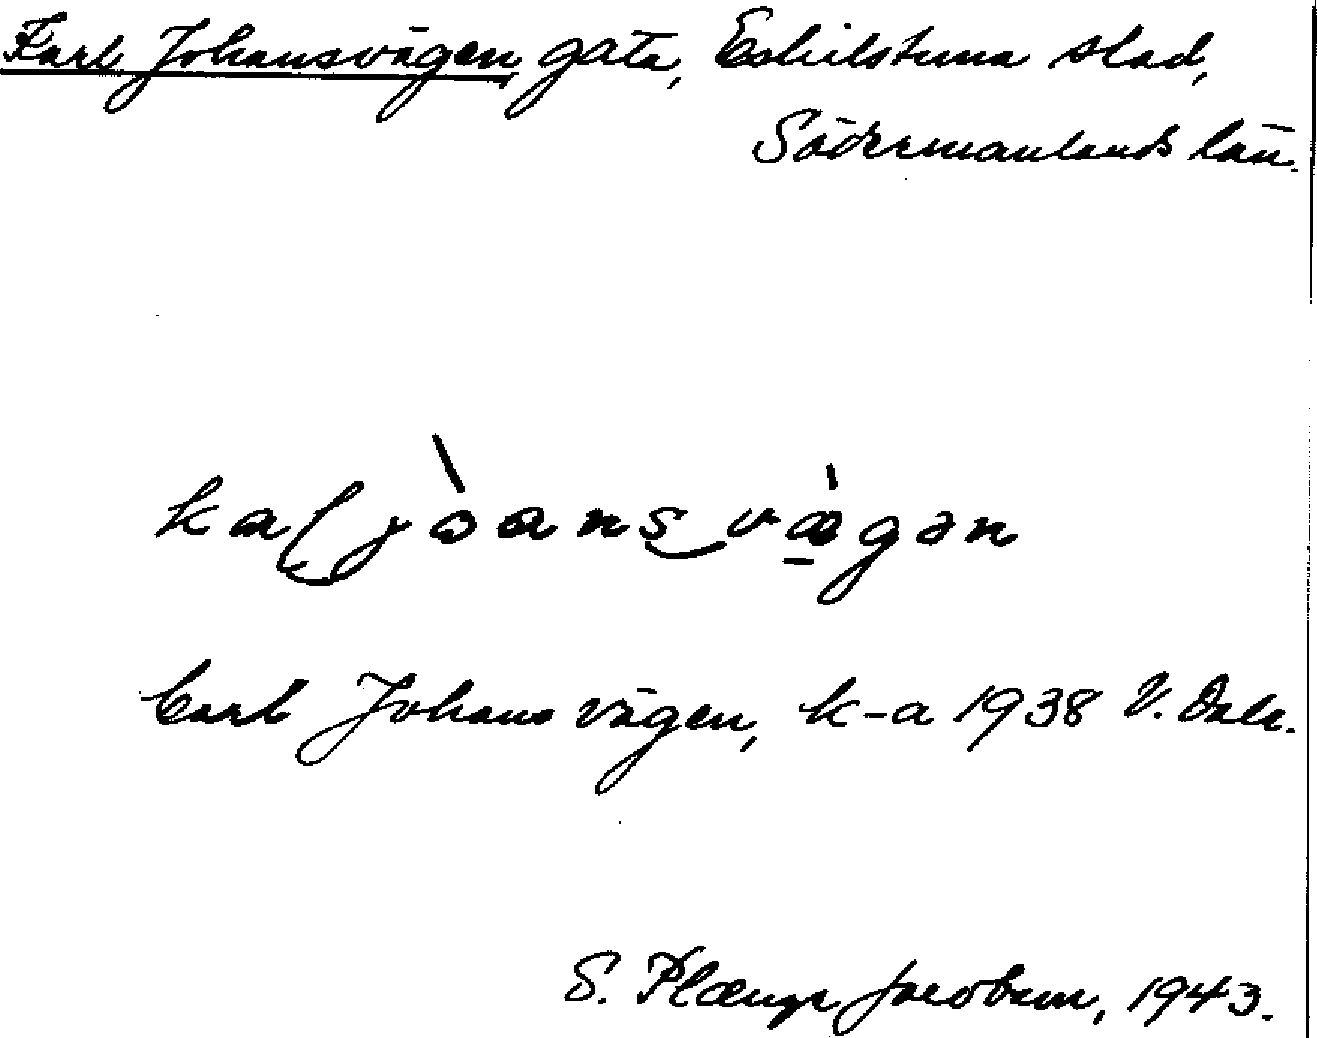 Karl Johansvägen, gata, Eskilstuna stad,
Södermanlands län.
kaļjòansvæ̀gən
Carl Johans vägen, k-a 1938 V. Dale.
S. Plænge Jacobson, 1943.